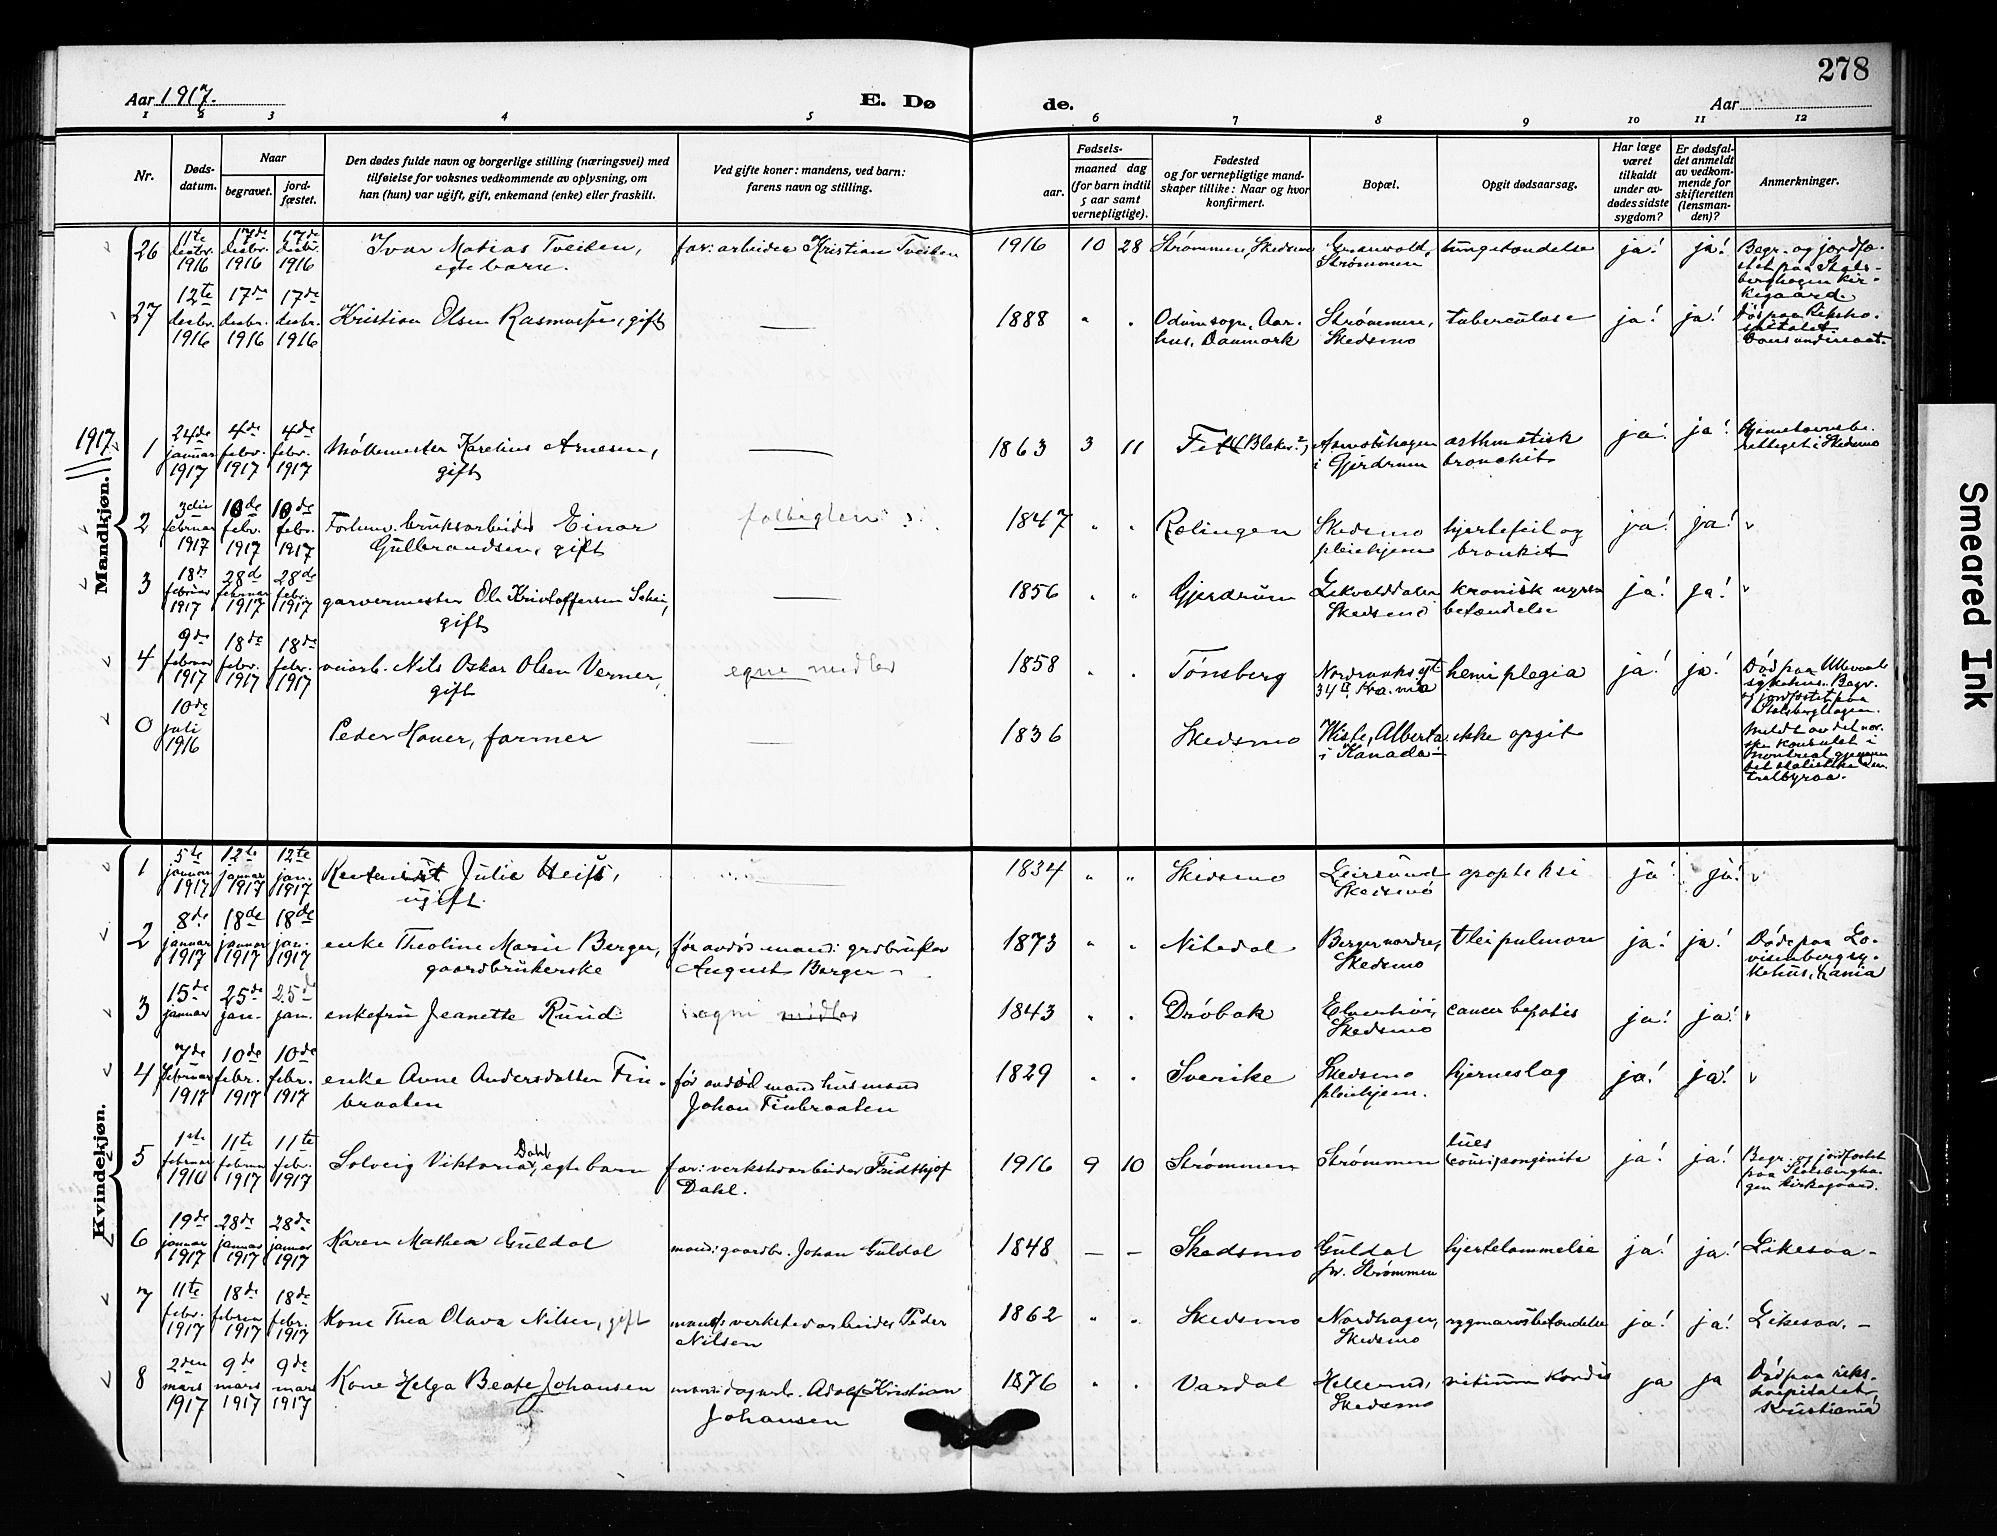 278
Aar 1917.
E. Dø
de.
Aar
1 2 3 4 5 6 7 8 9 10 11 12
Nr.
Døds-
datum.
Naar
begravet.
jord-
fæstet.
Den dødes fulde navn og borgerlige stilling (næringsvei) med
tilføielse for voksnes vedkommende av oplysning, om
han (hun) var ugift, gift, enkemand (enke) eller fraskilt.
Ved gifte koner: mandens, ved barn:
farens navn og stilling.
Fødsels-
aar.
maaned dag
(for barn indtil
5 aar samt
vernepligtige).
Fødested
og for vernepligtige mand-
skaper tillike: Naar og hvor
konfirmert.
Bopæl.
Opgit dødsaarsag.
Har læge
været
tilkaldt
under av-
dødes sidste
sygdom?
Er dødsfal-
det anmeldt
av vedkom-
mende for
skifteretten
(lensman-
den)?
Anmerkninger.
Mandkjøn.
26 11te desbr. 1916 17de desbr. 1916 17de desbr. 1916
Ivar Matias Tveiten,
egte barn.
far: arbeider Kristian Tveiten
1916 10 28 Strømmen, Skedsmo
Strømmen
lungebetændelse ja! ja!
Begr. og jordfæ-
stet paa Stals-
berghagen kir-
kegaard.
27 12te desbr. 1916 17de desbr. 1916 17de desbr. 1916
Kristian Olsen Rasmussen, gift
—
1888 " "
Odum sogn, Aar-
hus, Danmark
Strømmen,
Skedsmo
tuberculose ja! ja!
Død paa Riksho-
spitalet.
Dansk undersaat.
1917
1 24de januar 1917 4de febr. 1917 4de febr. 1917
Møllemester Karelius Arnesen,
gift
—
1863 3 11 Fet (Blaker?)
i Gjerdrum
asthmatisk
bronchit
ja! ja!
Hjemstavnsbe-
rettiget i Skedsmo
2 3die februar 1917 10de febr. 1917 10de febr. 1917
Forhenv. bruksarbeider Einar
Gulbrandsen, gift
1847 " " Rælingen
Skedsmo
pleiehjem
hjertefeil og
bronkit
ja! ja! "
3 18de februar 1917 28de februar 1917 28de febr. 1917
garvermester Ole Kristoffersen
gift
—
1856 " " Gjerdrum
Skedsmo
kronisk nyre-
betændelse
ja! ja! "
4 9de februar 1917 18de febr. 1917 18de febr. 1917
veiarb. Nils Oskar Olsen Verner,
gift
egne midler
1858 " " Tønsberg
34 Kra.nia
hemiplegia ja! ja!
Død paa Ullevaal
sykehus. Begr.
og jordfæstet paa
Stalsberghagen.
0 10de juli 1916
Peder Hauer, farmer
—
1836 Skedsmo
Wiste, Alberta
i Kanada
ikke opgit
Meldt av det nor-
ske konsulat i
Montreal gjennem
det statistiske cen-
tralbyraa.
Kvindekjøn.
1 5te januar 1917 12te januar 1917 12te jan. 1917
Rentenist Julie Heist,
ugift.
1834 " " Skedsmo
Leirsund
Skedsmo
apopleksi ja! ja! "
2 8de januar 1917 18de januar 1917 18de jan. 1917
enke Theoline Marie Berger,
gaardbrukerske
før avdød mand: grdbruker
August Berger –
1873 " " Nitedal
Berger nordre,
Skedsmo
ja! ja!
Døde paa Lo-
visenberg sy-
kehus, K.ania
3 15de januar 25de jan. 25de jan.
enkefru Jeanette Ruud
egne midler
1843 " " Drøbak
Skedsmo
cancer hepatis ja! ja! "
4 7de februar 1917 10de febr. 1917 10de febr. 1917
enke Anne Andersdatter Fin-
braaten
før avdød mand husmand
Johan Finbraaten
1829 " " Sverike
Skedsmo
pleiehjem.
hjerneslag ja! ja! "
5 1ste februar 1916 11te februar 1917 11te febr. 1917
Solveig Viktoria Dahl, egte barn
far: verkstedarbeider Fridthjof
Dahl.
1916 9 10 Strømmen Strømmen
lues
congenita
ja! ja!
Begr. og jordfæstet
paa Stalsbergha-
gen kirkegaard.
6 19de januar 1917 28de januar 1917 28de januar 1917
Karen Mathea Guldal
mand: gaardbr. Johan Guldal
1848 – – Skedsmo
Guldal
pr. Strømmen
hjertelammelse ja! ja! Likesaa –
7 11te febr. 1917 18de februar 1917 18de febr. 1917
Kone Thea Olava Nilsen, gift
mand: verkstedarbeider Peder
Nilsen
1862 " " Skedsmo
Nordhagen,
Skedsmo
rygmarvsbetændelse ja! ja! Likesaa. –
8 2den mars 1917 9de mars 1917 9de mars 1917
Kone Helga Beate Johansen
mand: dagarb. Adolf Kristian
Johansen
1876 " " Vardal
Hellerud,
Skedsmo
vitium kordis ja ja
Død paa riks-
hospitalet,
Kristiania
Smeared Ink